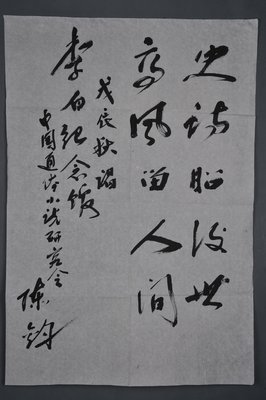 史诗昭後世
高風留人间
戊辰秋谒
李白纪念馆
中国通俗小说研究会
陈钧